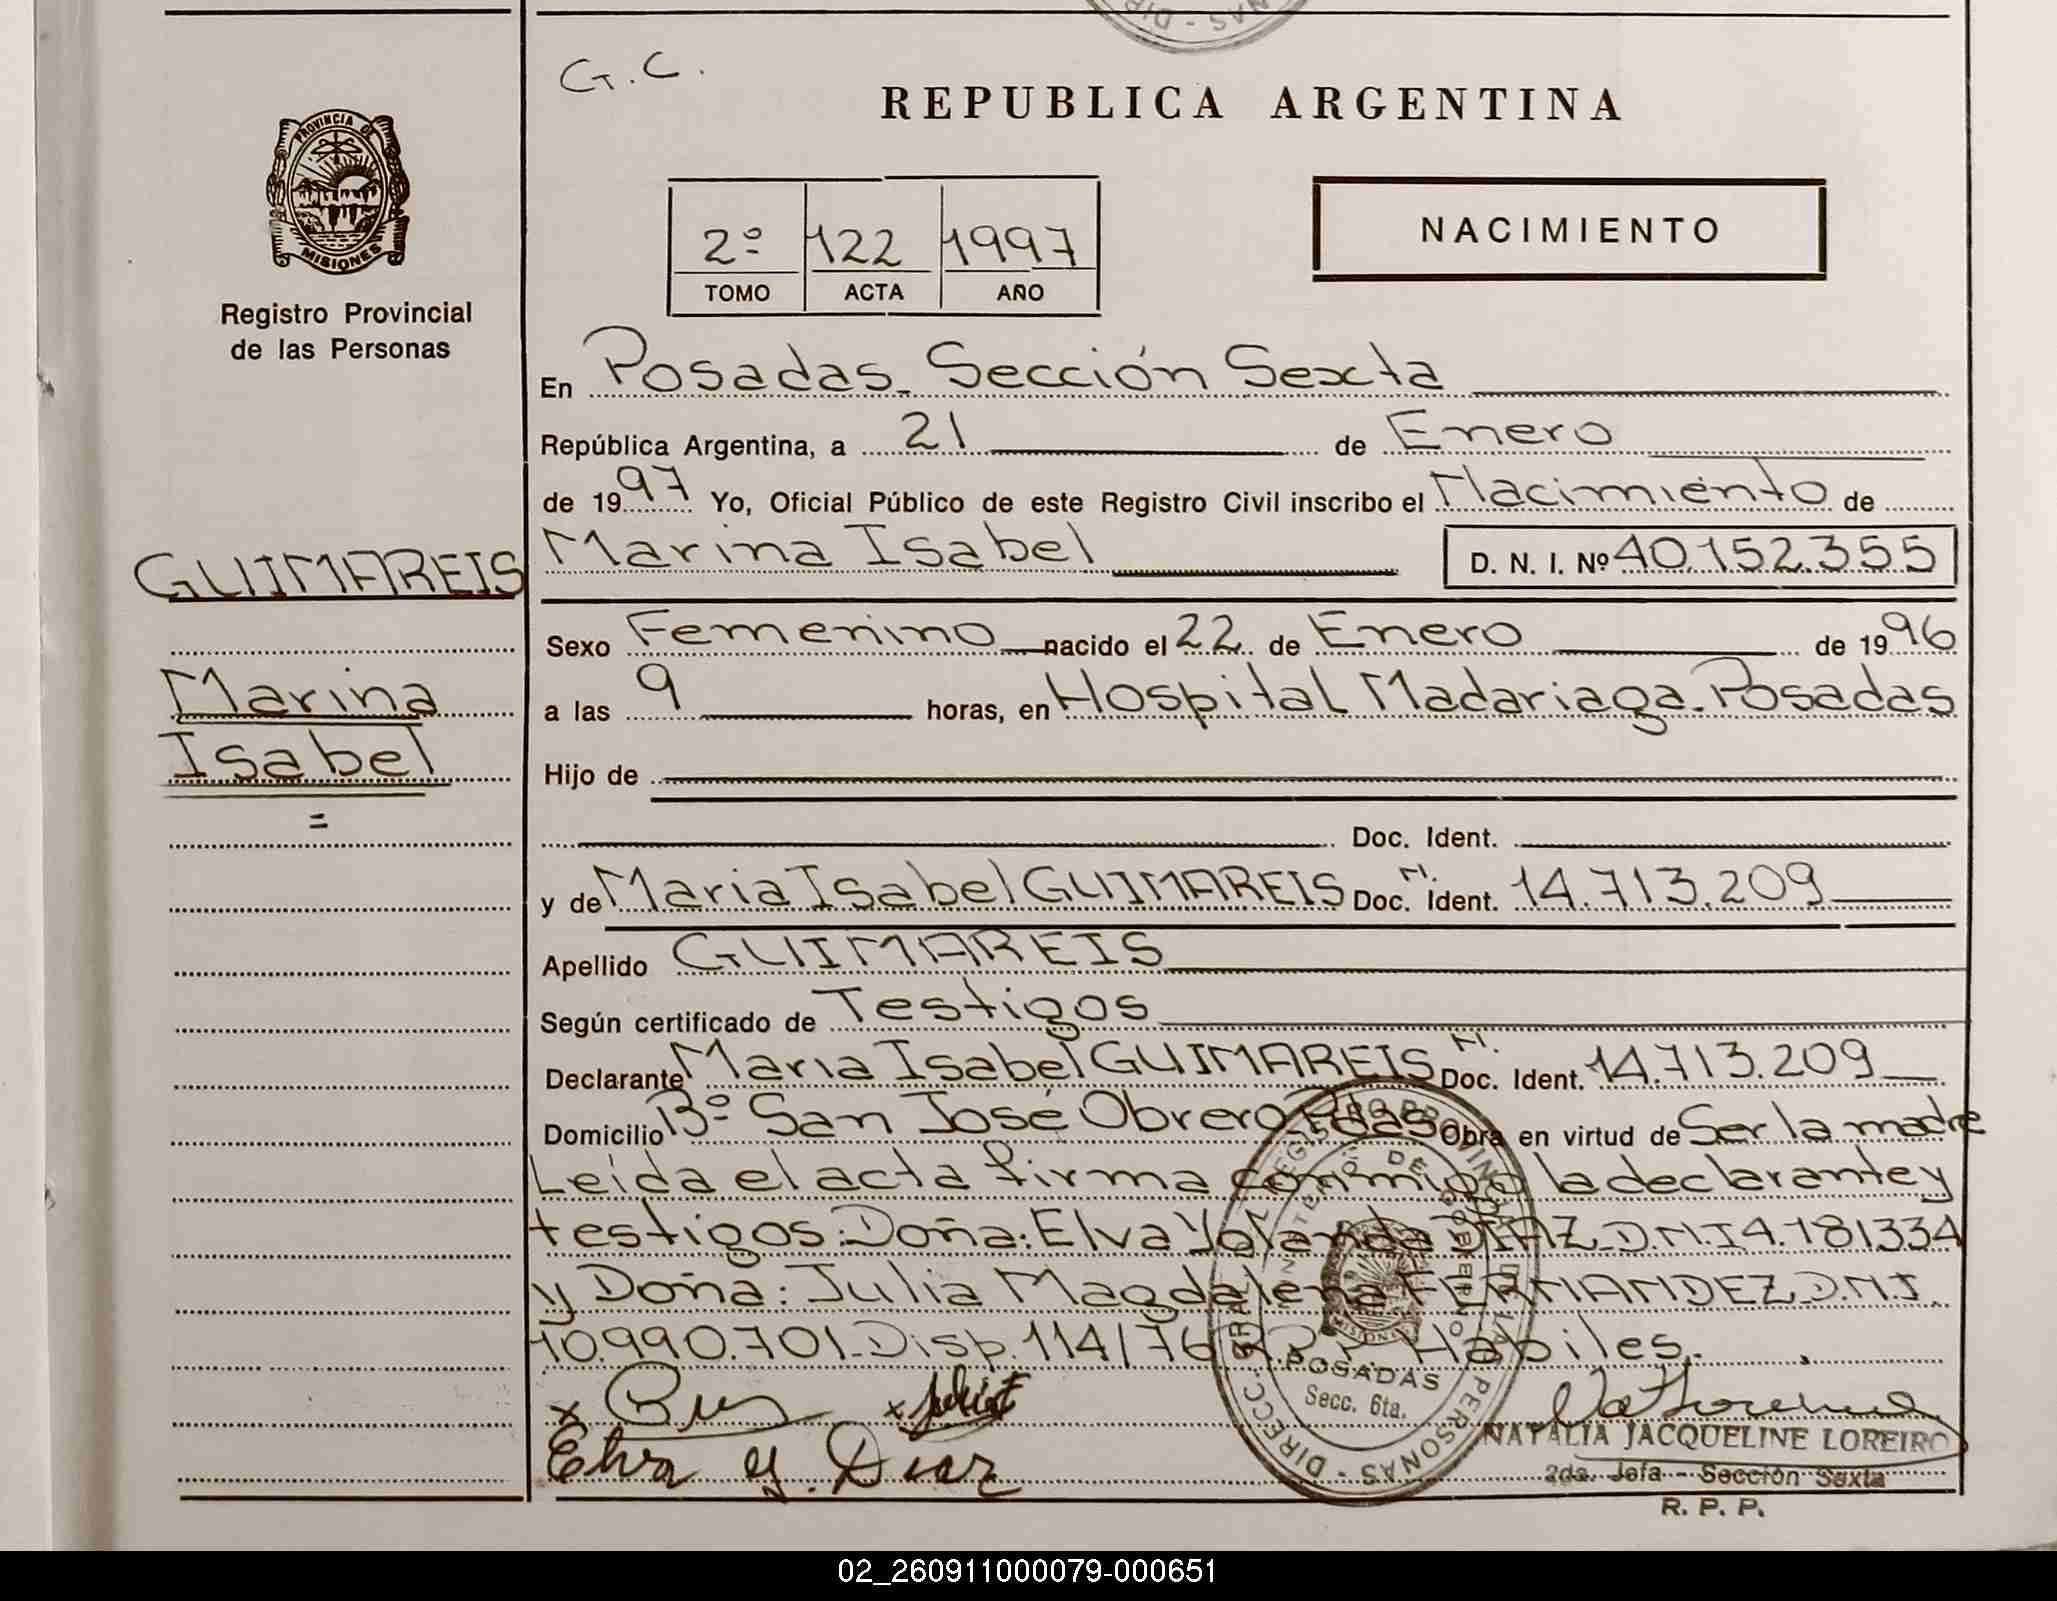 G. C.
REPUBLICA ARGENTINA
PROVINCIA DE
MISIONES
Registro Provincial
de las Personas
2º 122 1997
TOMO ACTA AÑO
NACIMIENTO
En Posadas. Sección Sexta
República Argentina, a 21 de Enero
de 1997 Yo, Oficial Público de este Registro Civil inscribo el Nacimiento de
GUIMAREIS
Marina Isabel D. N. I. Nº 40.152.355
Sexo Femenino nacido el 22 de Enero de 1996
Marina
a las 9 horas, en Hospital Madariaga. Posadas
Isabel
=
Hijo de
Doc. Ident.
y de Maria Isabel GUIMAREIS Doc. N. Ident. 14.713.209
Apellido GUIMAREIS
Según certificado de Testigos
Declarante Maria Isabel GUIMAREIS Doc. N. Ident. 14.713.209
Domicilio Bº San José Obrero Pdas Obra en virtud de Ser la madre
Leída el acta firma conmigo la declarante y
testigos: Doña: Elva Yolanda DIAZ. D.N.I 4.181334
y Doña: Julia Magdalena FERNANDEZ. D.N.I.
10.990.701. Disp. 114/76 Habiles.
Elva y. Diaz
POSADAS
Secc. 6ta.
NATALIA JACQUELINE LOREIRO
2da. Jefa - Sección Sexta
R. P. P.
02_260911000079-000651